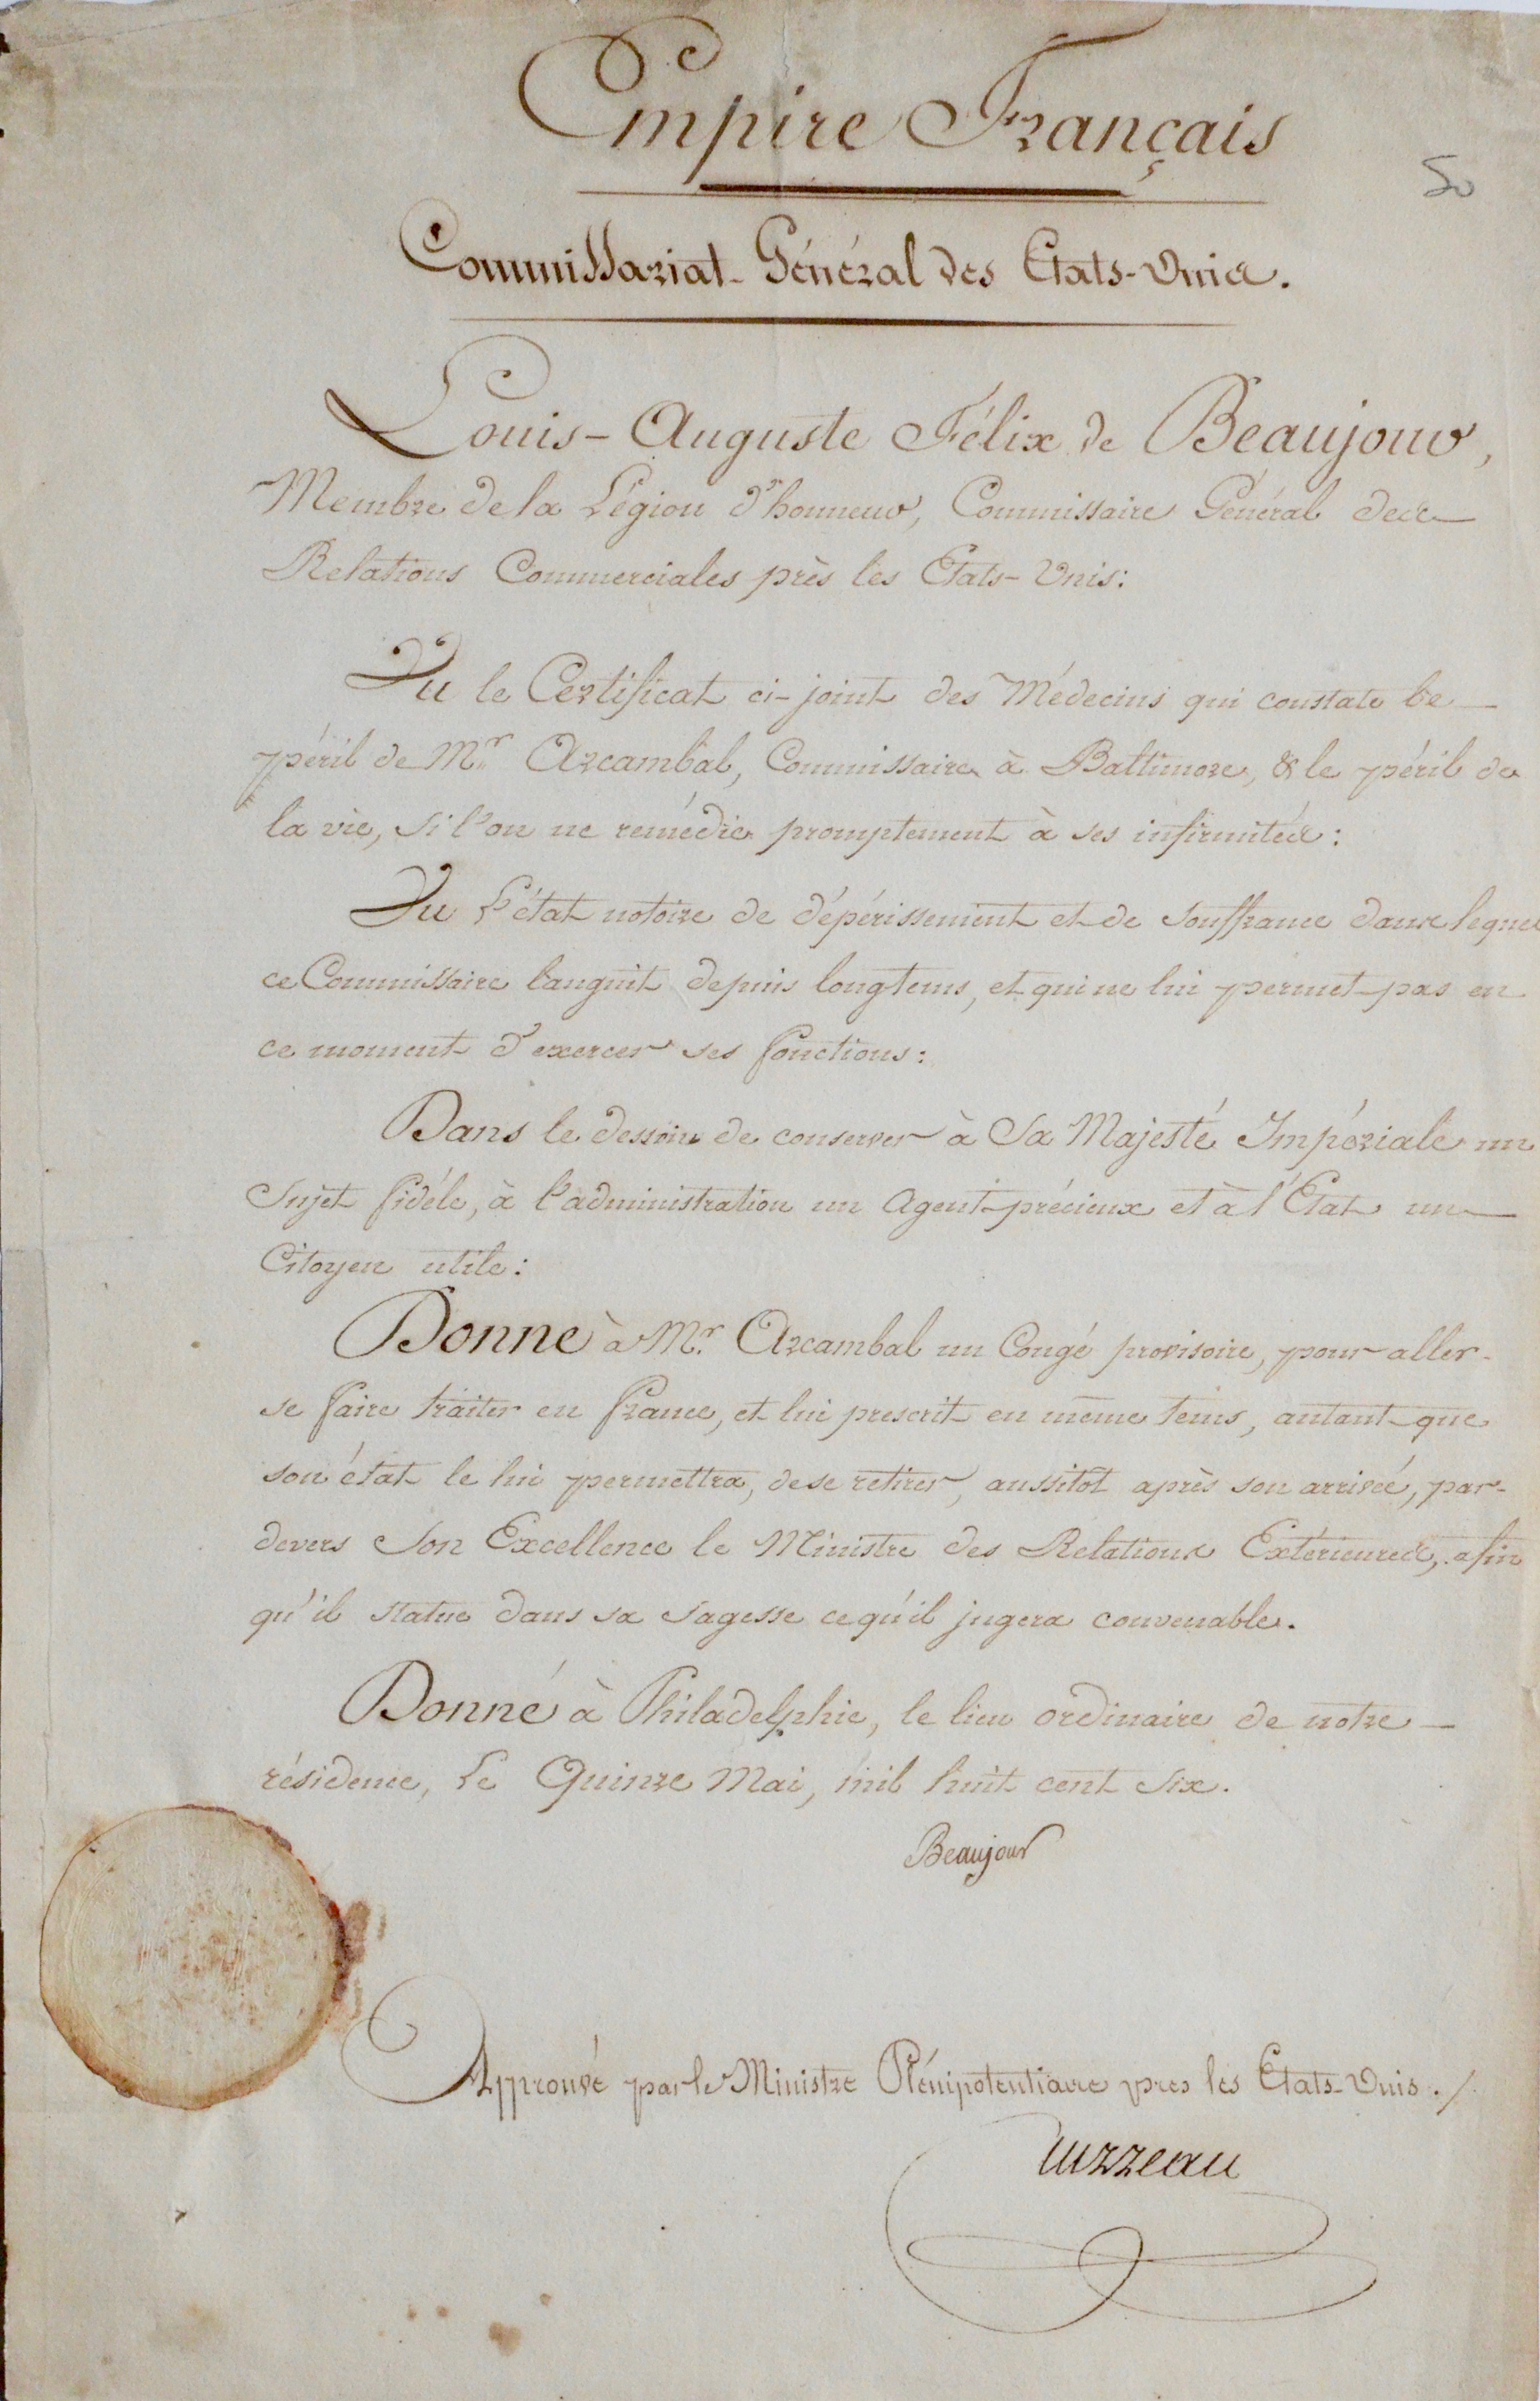 Empire Français
50
Commissariat-Général des Etats-Unis.
Louis-Auguste Félix de Beaujour,
Membre de la Légion d'honneur, Commissaire Général des
Relations Commerciales près les Etats-Unis:
Vu le Certificat ci-joint des Médecins qui constate le
péril de Mr Arcambal, Commissaire à Baltimore, & le péril de
la vie, si l'on ne remédie promptement à ses infirmités:
Vu l'état notoire de dépérissement et de souffrance dans lequel
ce Commissaire languit depuis longtems, et qui ne lui permet pas en
ce moment d'exercer ses fonctions:
Dans le dessein de conserver à Sa Majesté Impériale un
Sujet fidéle, à l'administration un Agent précieux et à l'Etat un
Citoyen utile:
Donne à Mr. Arcambal un Congé provisoire, pour aller
se faire traiter en france, et lui prescrit en même tems, autant que
son état le lui permettra, de se retirer, aussitôt après son arrivée, par-
devers Son Excellence le Ministre des Relations Extérieures, afin
qu'il statue dans sa sagesse ce qu'il jugera convenable.
Donné à Philadelphie, le lieu ordinaire de notre
résidence, le Quinze Mai, mil huit cent six.
Beaujour
Approuvé par le Ministre Plénipotentiaire près les Etats-Unis ./.
Turreau